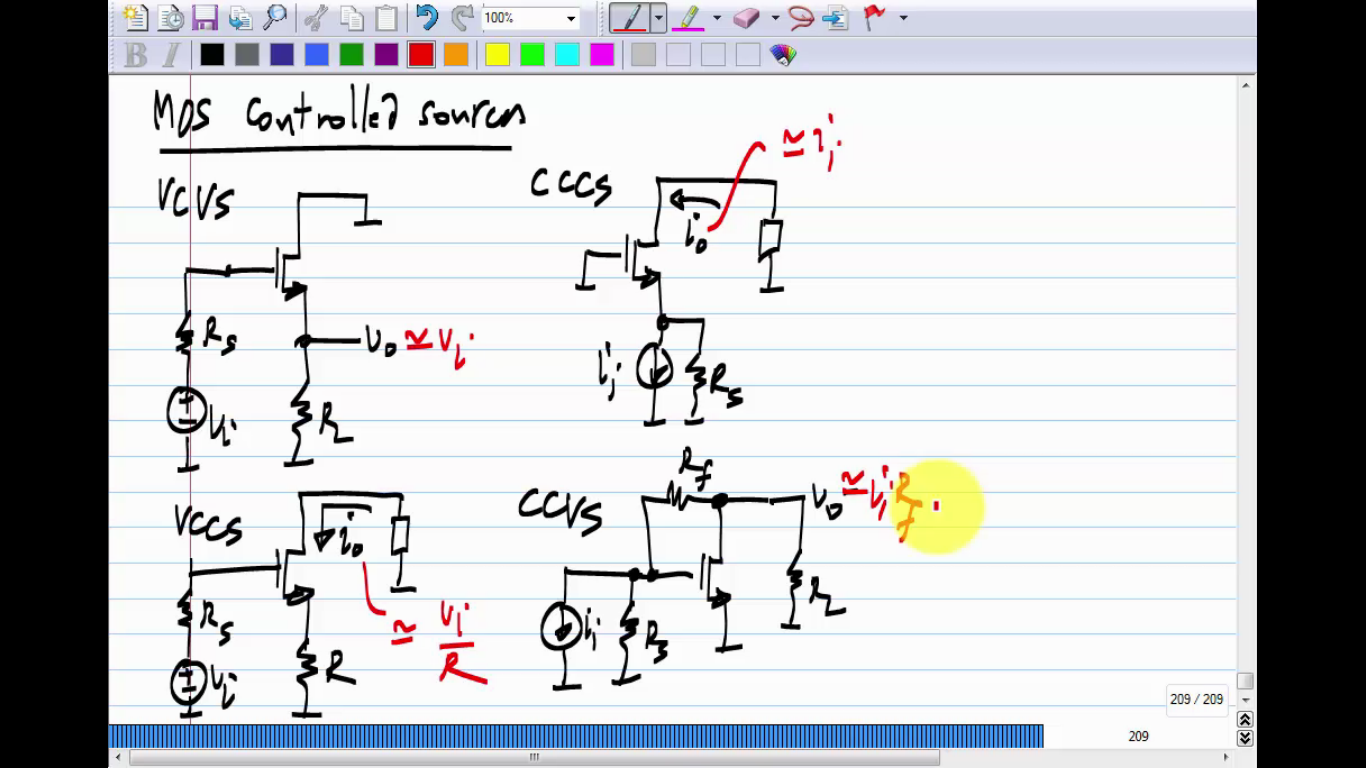 100%
B I
MOS Controlled sources
VCVS
Rs
Vi
vo ≃ vi
RL
CCCS
io
≃ ii
ii
Rs
VCCS
Rs
Vi
io
≃ vi/R
R
CCVS
Rf
vo ≃ ii Rf
ii
Rs
RL
209 / 209
209